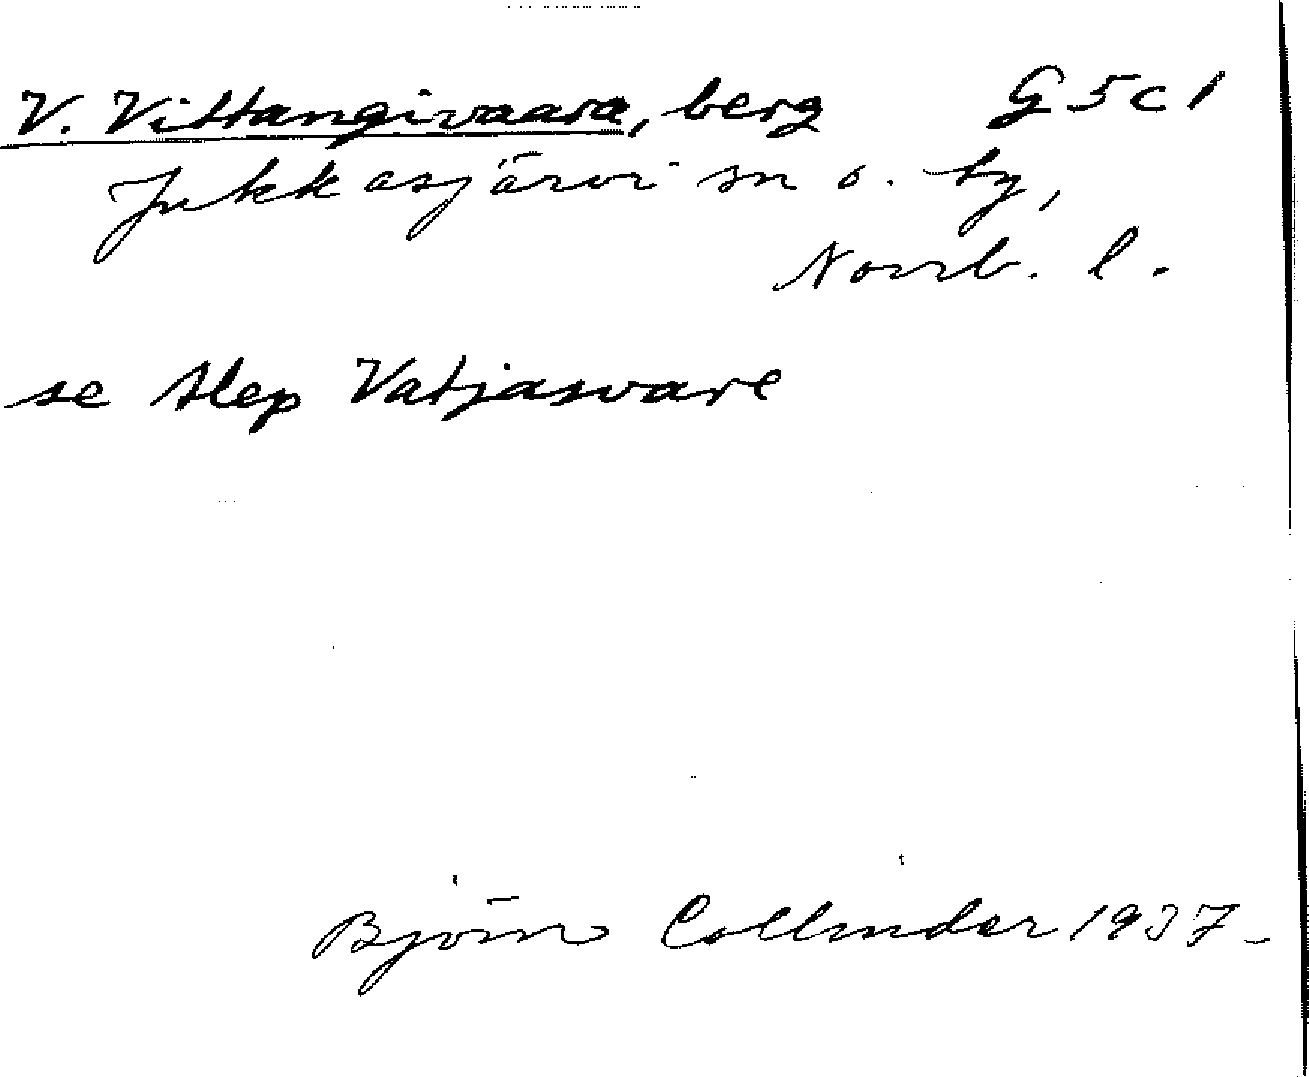 V. Vittangivaara, berg G5c1
Jukkasjärvi sn o. by,
Norrb. l.
se Alep Vatjasvare
Björn Collinder 1937-